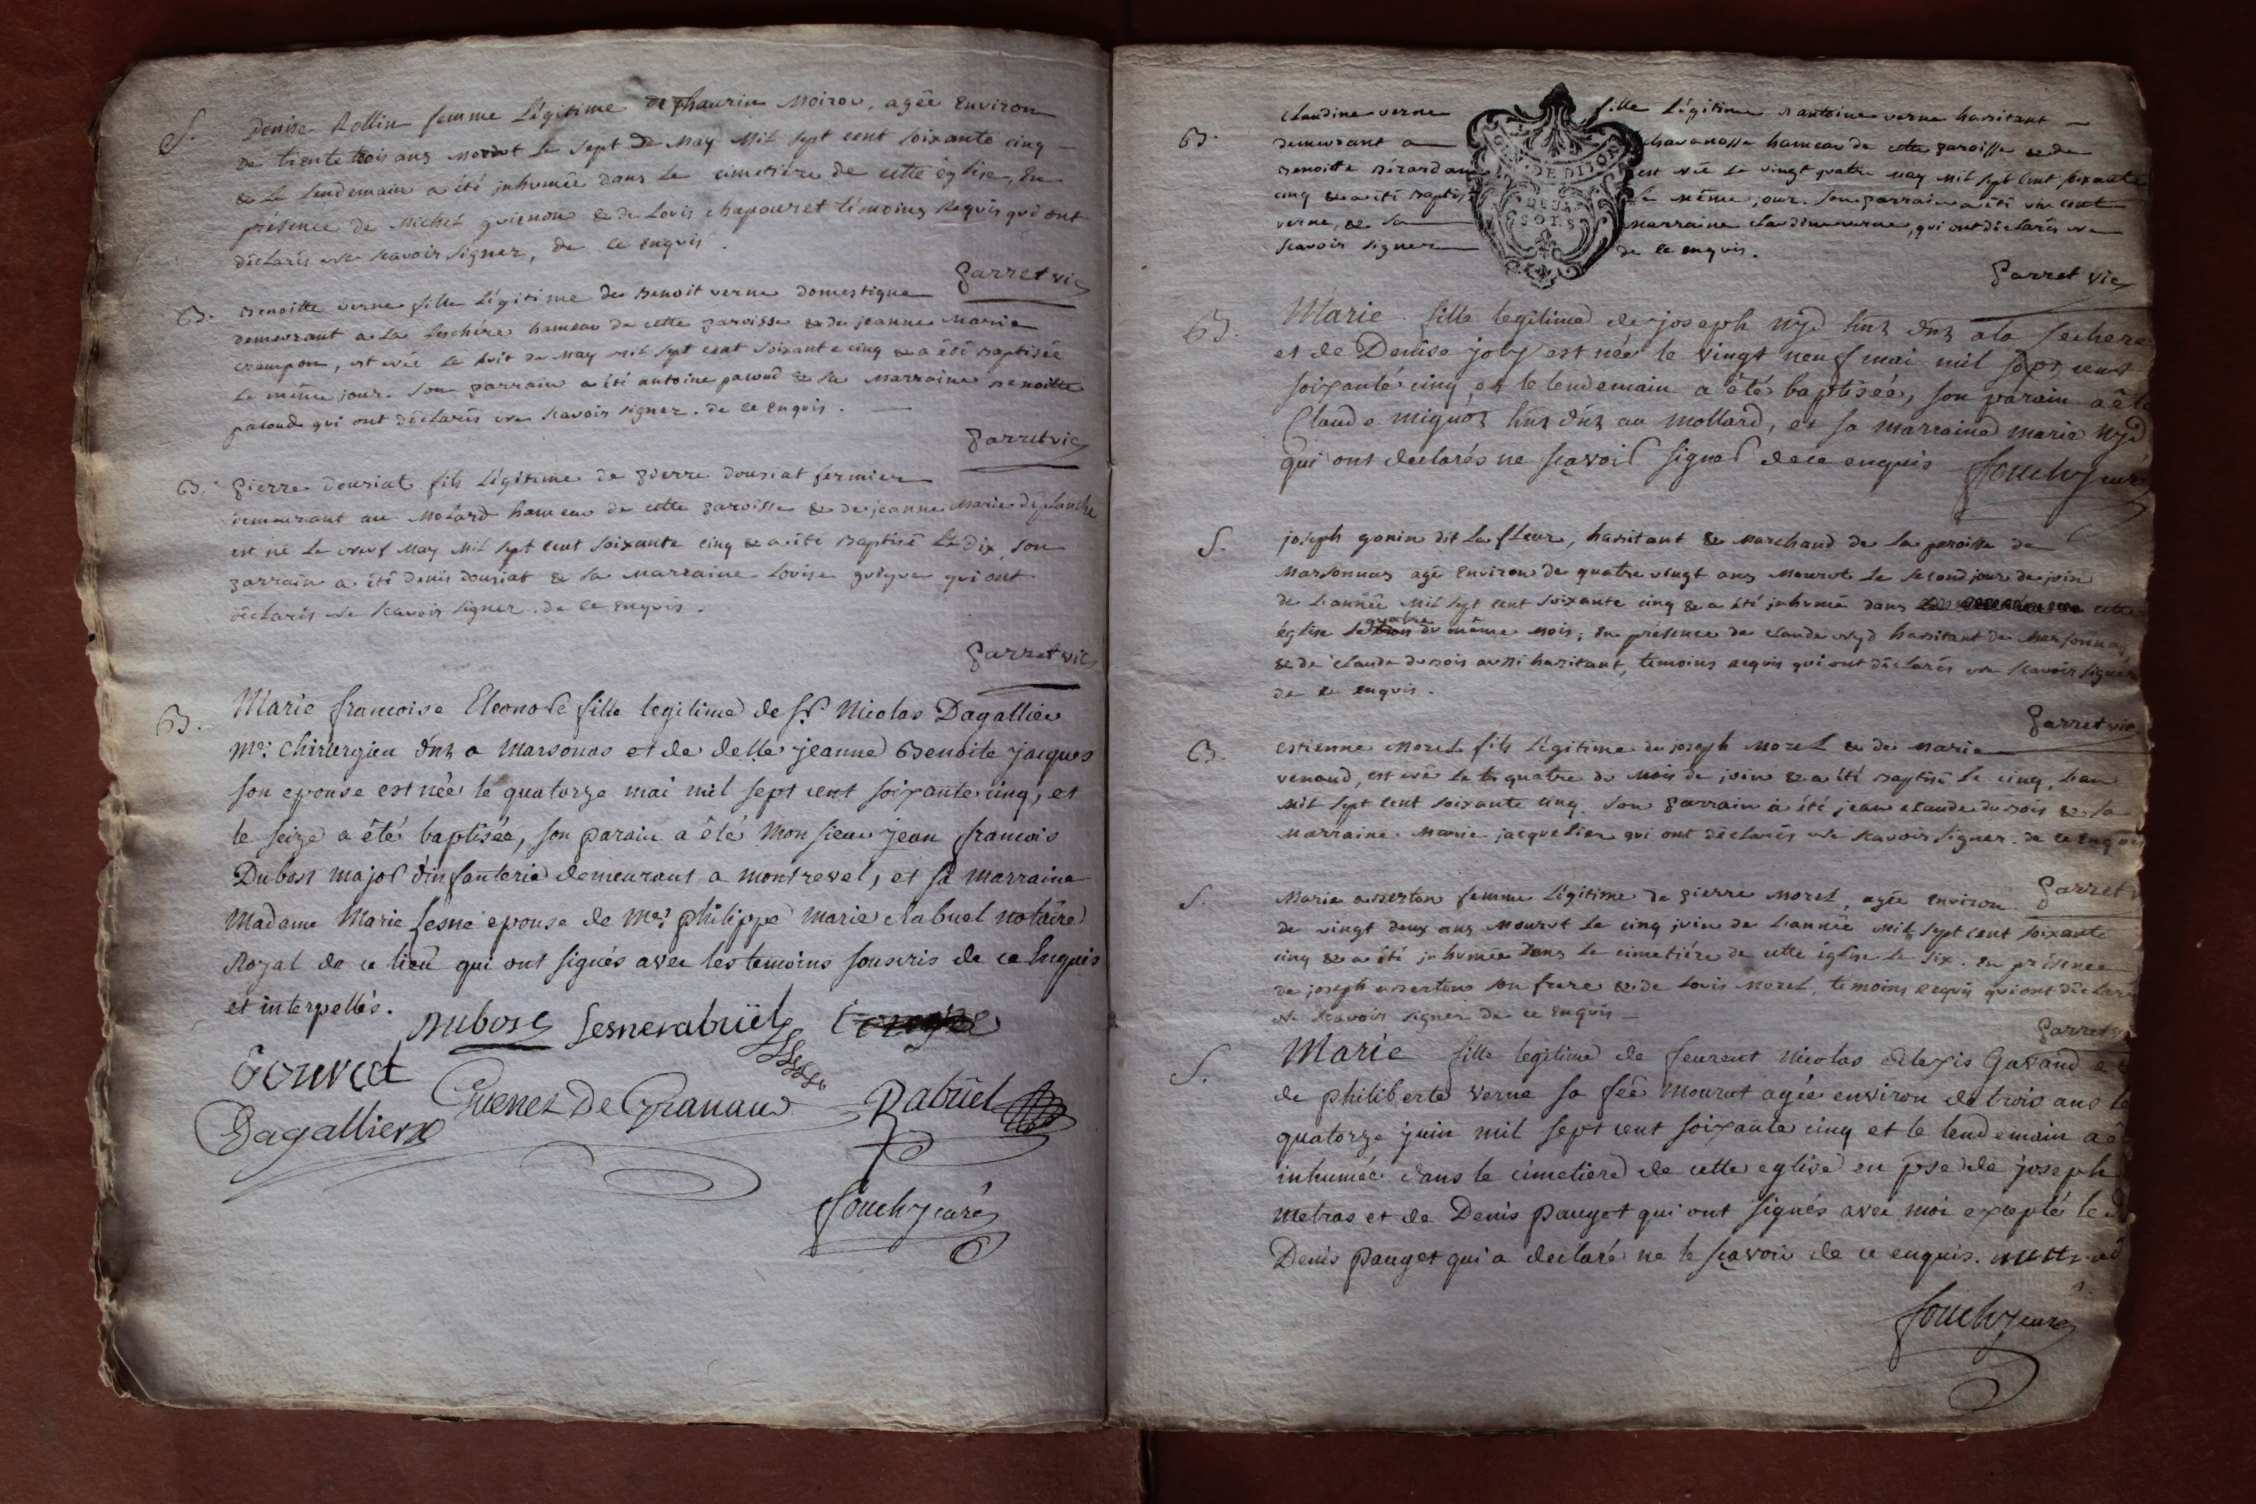 S. Denise Rollin femme Légitime de Thaurin Moirou, agée Environ
de trente trois ans Mourut Le sept de May Mil sept cent soixante cinq
& Le lendemain a été jnhumée dans Le cimetiére de cette église, En
présence de Michel guienon & de Lovis chapouret témoins Requis qui ont
déclarés ne scavoir signer, de ce enquis.
Parret vic
B. Benoitte verne fille Légitime de Benoit verne domestique
demeurant a La Leschére hameau de cette paroisse & de jeanne Marie
crempon, est née Le huit de May Mil sept cent soixante cinq & a été Baptisée
Le même jour. son parrain a été antoine pacoud & sa Marraine Benoitte
pacoud qui ont déclarés ne scavoir signer. de ce enquis.
Parret vic
B. Pierre Dousiat fils Légitime de Pierre Dousiat fermier
demeurant au Molard hameau de cette paroisse & de jeanne Marie déplanche
est né Le neuf May Mil sept cent soixante cinq & a été Baptisé Le dix, son
parrain a été denis dousiat & sa Marraine Lovise qui ont
déclarés ne scavoir signer. de ce enquis.
Parret vic
B. Marie francoise Eleonore fille legitime de Sr. Nicolas Dagallier
Mr. Chirurgien dnt a Marsonas et de delle jeanne Benoite jacques
son epouse est née le quatorze mai mil sept cent soixante cinq, et
le seize a été baptisée, son parain a été Monsieur jean francois
Dubost major d'infanterie demeurant a montrevel, et sa marraine
Madame Marie Lesne epouse de me. philippe marie rabuel notaire
Royal de ce lieu qui ont signés avec les temoins souscris de ce Enquis
et interpellés.
Dubost Lesnerabüel
Gouvet
Guenez De Granau Rabüel
Dagallier
fouchy curé
B. Claudine verne fille Légitime d antoine verne habitant
demeurant a chavanosse hameau de cette paroisse & de
Benoitte Bérardan est née Le vingt quatre may Mil sept cent soixante
cinq & a été Baptisée Le même jour. son parrain a été vincent
verne, & sa marraine claudine verne, qui ont déclarés ne
scavoir signer de ce enquis.
GEN. DE DIJON
SOLS
Parret vic
B. Marie fille legitime de joseph Nyd hnt dnt a la Lechere
et de Denise joly est née le vingt neuf mai mil sept cent
soixante cinq, et le lendemain a été baptisée, son parain a été
Claude mignot hnt dnt au mollard, et sa marraine marie Nyd
qui ont declarés ne sçavoir signer de ce enquis fouchy curé
S. joseph gonin dit La fleur, habitant & marchand de la paroisse de
Marsonnas agé Environ de quatre vingt ans Mourut Le second jour de join
de L'année Mil sept cent soixante cinq & a été jnhumé dans cette
église Le quatre du même Mois, En présence de claude Nyd habitant de Marsonnas
& de claude dubois aussi habitant, témoins requis qui ont déclarés ne scavoir signer
de ce enquis.
Parret vic
B. Estienne Morel fils Légitime de joseph Morel & de Marie
venaud, est né Le quatre du Mois de join & a été Baptisé Le cinq, L'an
Mil sept cent soixante cinq. son parrain a été jean claude dubois & sa
Marraine Marie jacquelier qui ont déclarés ne scavoir signer. de ce enquis
Parret v
S. Marie femme Légitime de Pierre Morel, agée environ
de vingt deux ans Mourut Le cinq join de L'année Mil sept cent soixante
cinq & a été jnhumée dans Le cimetiére de cette église Le six. En présence
de joseph son frere & de Lovis Morel, témoins requis qui ont déclaré
ne scavoir signer de ce Enquis
Parret v
S. Marie fille legitime de Laurent Nicolas Alexis Gavand et
de philiberte verne sa fee mourut agée environ de trois ans le
quatorze juin mil sept cent soixante cinq et le lendemain a é
inhumée dans le cimetiere de cette eglise en pse de joseph
metras et de Denis pauget qui ont signés avec moi excepté le d
Denis pauget qui a declaré ne le sçavoir de ce enquis.
fouchy curé